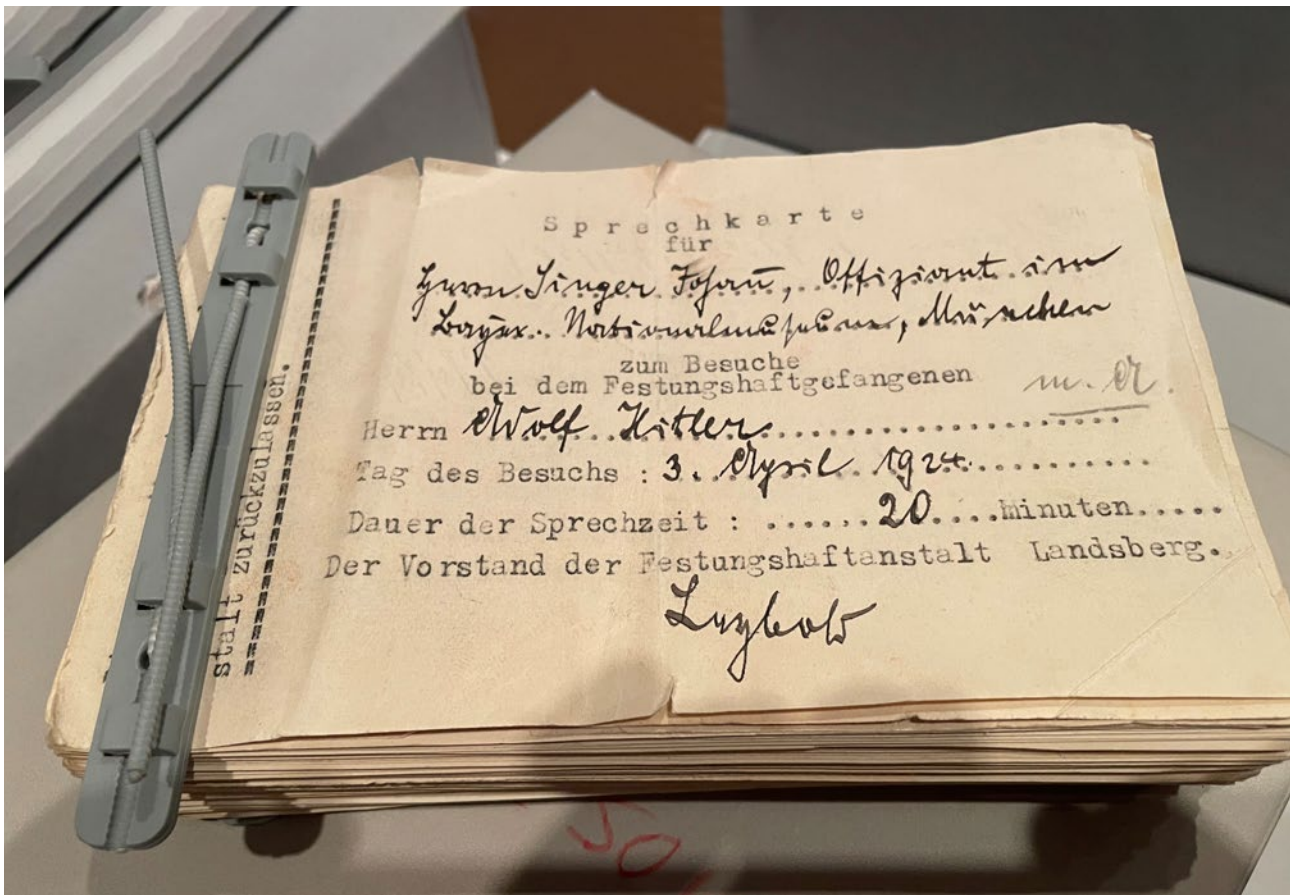 Sprechkarte
für
Herrn Singer Johañ, Offiziant im
Bayer. Nationalmuseum, München
zum Besuche
bei dem Festungshaftgefangenen
Herrn Adolf Hitler
Tag des Besuchs : 3. April 1924
Dauer der Sprechzeit : ...... 20 .... Minuten .....
Der Vorstand der Festungshaftanstalt Landsberg.
Leybold
stalt zurückzulassen.